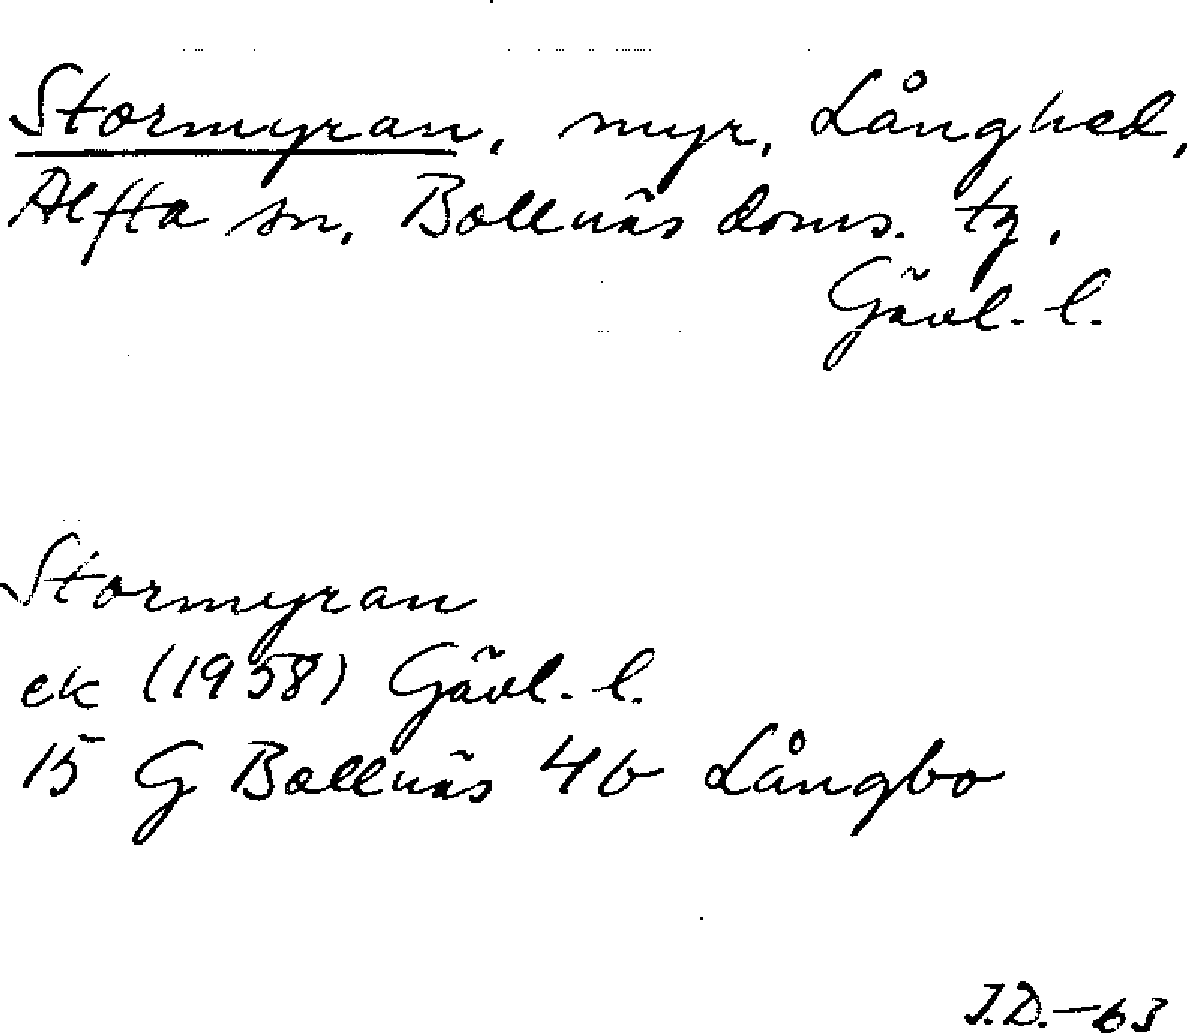 Stormyran, myr, Långhed,
Alfta sn, Bollnäs doms. tg,
Gävl. l.
Stormyran
ek (1958) Gävl. l.
15 G Bollnäs 4b Långbo
I.D.-63